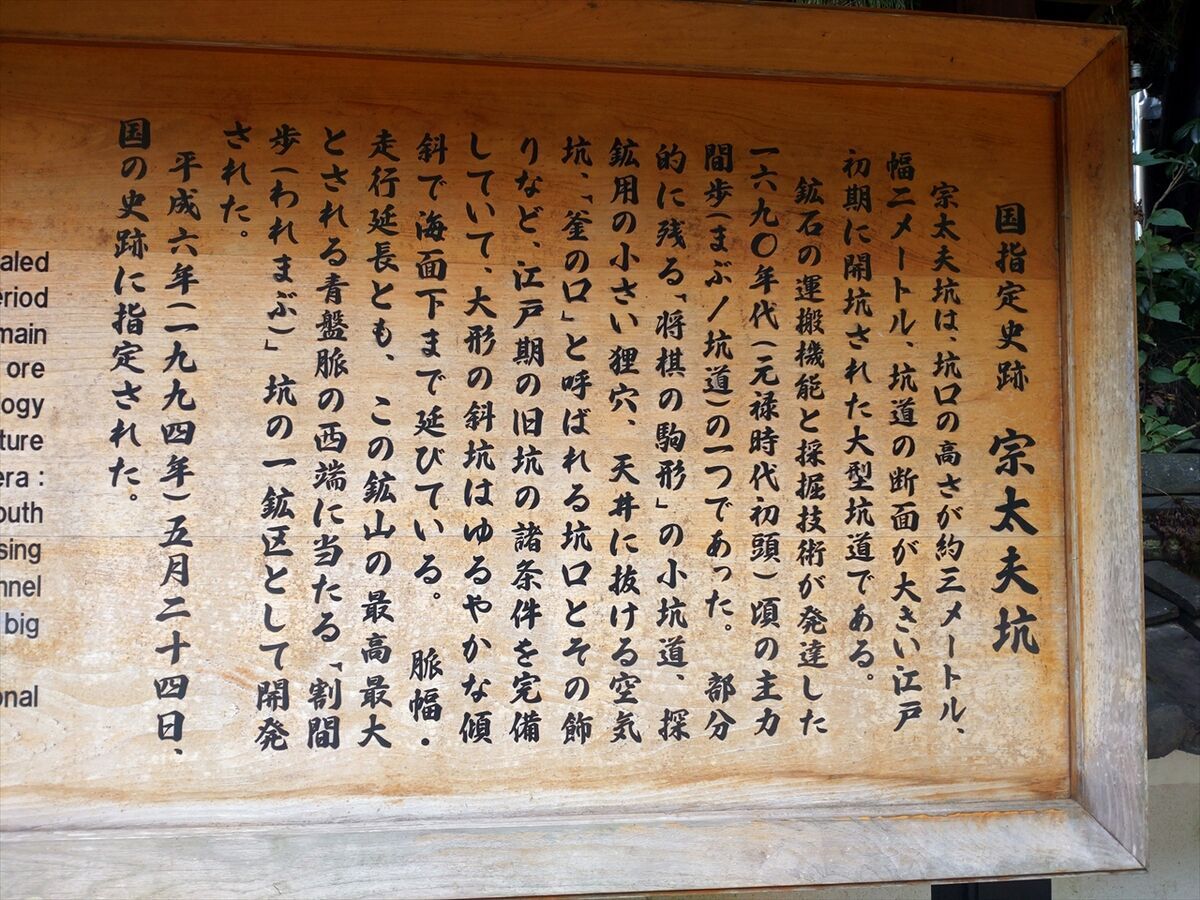 国指定史跡　宗太夫坑
宗太夫坑は、坑口の高さが約三メートル、
幅二メートル、坑道の断面が大きい江戸
初期に開坑された大型坑道である。
鉱石の運搬機能と採掘技術が発達した
一六九〇年代(元禄時代初頭)頃の主力
間歩(まぶ/坑道)の一つであった。　部分
的に残る「将棋の駒形」の小坑道、探
鉱用の小さい狸穴、天井に抜ける空気
坑、「釜の口」と呼ばれる坑口とその飾
りなど、江戸期の旧坑の諸条件を完備
していて、大形の斜坑はゆるやかな傾
斜で海面下まで延びている。　脈幅・
走行延長とも、この鉱山の最高最大
とされる青盤脈の西端に当たる「割間
歩(われまぶ)」坑の一鉱区として開発
された。
平成六年(一九九四年)五月二十四日、
国の史跡に指定された。
aled
eriod
main
ore
ogy
ture
era :
outh
sing
nnel
big
onal